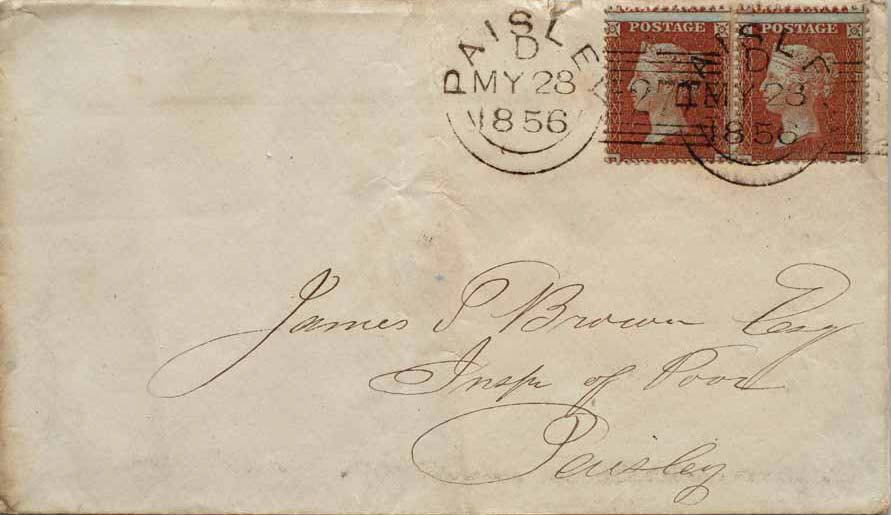 POSTAGE POSTAGE
PAISLEY PAISLEY
D D
MY 28 MY 28
1856 1856
James S Brown Esq
Inspr of Poor
Paisley